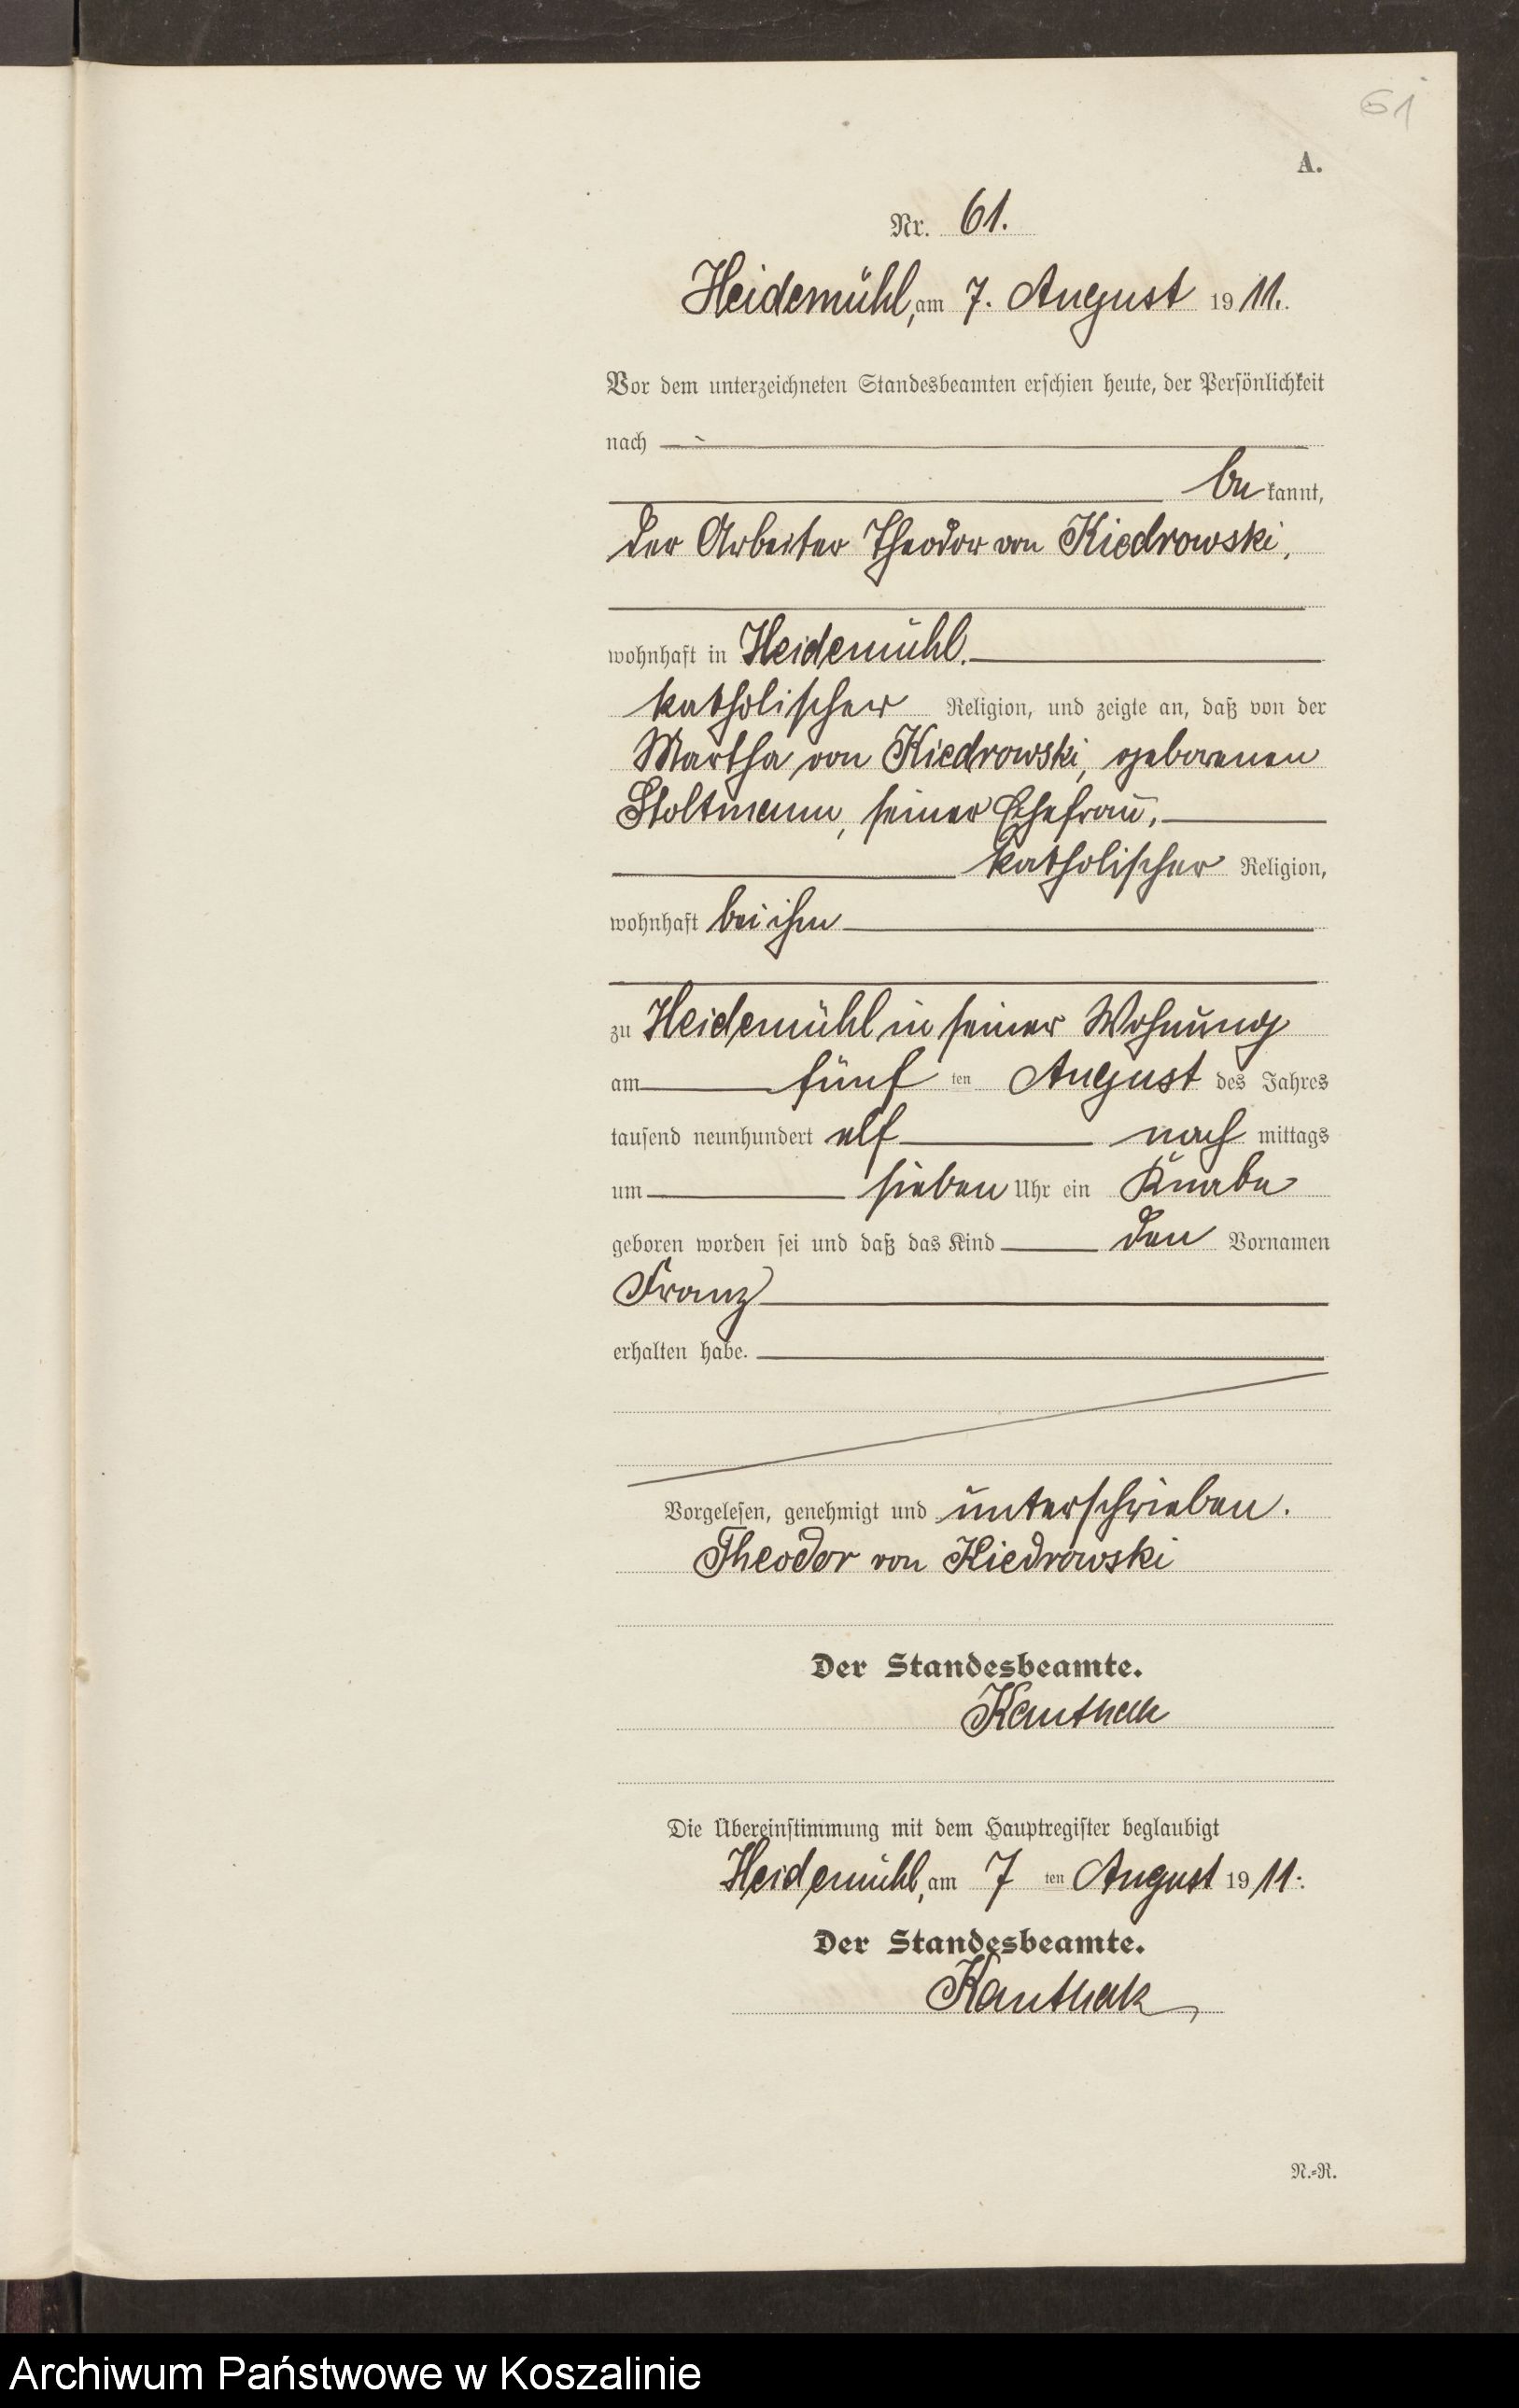 61
A.
Nr. 61.
Heidemühl, am 7. August 1911.
Vor dem unterzeichneten Standesbeamten erschien heute, der Persönlichkeit
nach
be kannt,
der Arbeiter Theodor von Kiedrowski,
wohnhaft in Heidemühl.
katholischer Religion, und zeigte an, daß von der
Martha von Kiedrowski, geborenen
Stoltmann, seiner Ehefrau,
katholischer Religion,
wohnhaft bei ihm
zu Heidemühl in seiner Wohnung
am fünf ten August des Jahres
tausend neunhundert elf nach mittags
um sieben Uhr ein Knabe
geboren worden sei und daß das Kind den Vornamen
Franz
erhalten habe.
Vorgelesen, genehmigt und unterschrieben.
Theodor von Kiedrowski
Der Standesbeamte.
Kanthak
Die Übereinstimmung mit dem Hauptregister beglaubigt
Heidemühl, am 7 ten August 1911.
Der Standesbeamte.
Kanthak
N.-R.
Archiwum Państwowe w Koszalinie